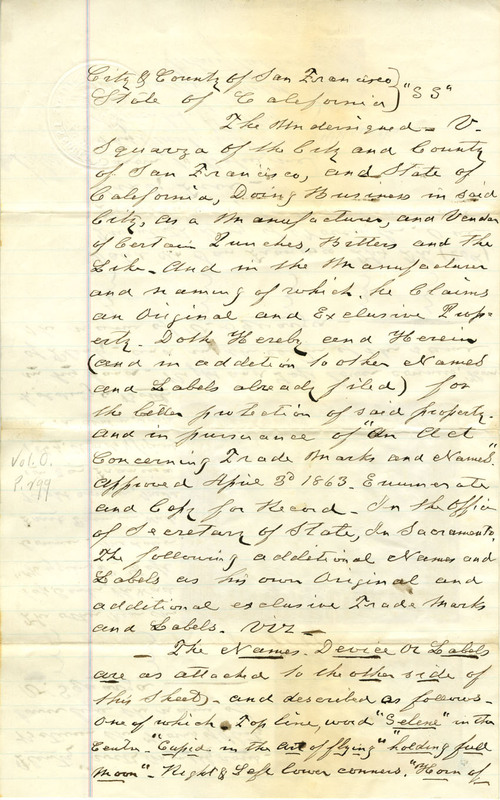 City & County of San Francisco)
State of California) "SS"
The Undersigned - V.
Squarza of the City and County
of San Francisco, and State of
California, Doing Business in said
City, as a Manufacturer, and Vendor
of Certain Punches, Bitters and the
Like - And in the Manufacture
and naming of which, he Claims
an Original and Exclusive Prop-
erty - Doth Hereby and Herein
(and in addition to other Names
and Labels already filed) for
the better protection of said property
and in pursuance of "An Act
Concerning Trade Marks and Names",
approved April 3d 1863 - Enumerate
and Copy for Record - In the Office
of Secretary of State, In Sacramento,
The following additional Names and
Labels as his own Original and
additional exclusive Trade Marks
and Labels - Viz -
- The Names. Device Or Labels
are as attached to the other side of
this Sheet) - and described as follows -
One of which. Top line, word "Selene" in the
Center - "Cupid in the art of flying" "holding full
Moon" - Right & Left lower corners. "Horn of
Vol. O.
P. 299